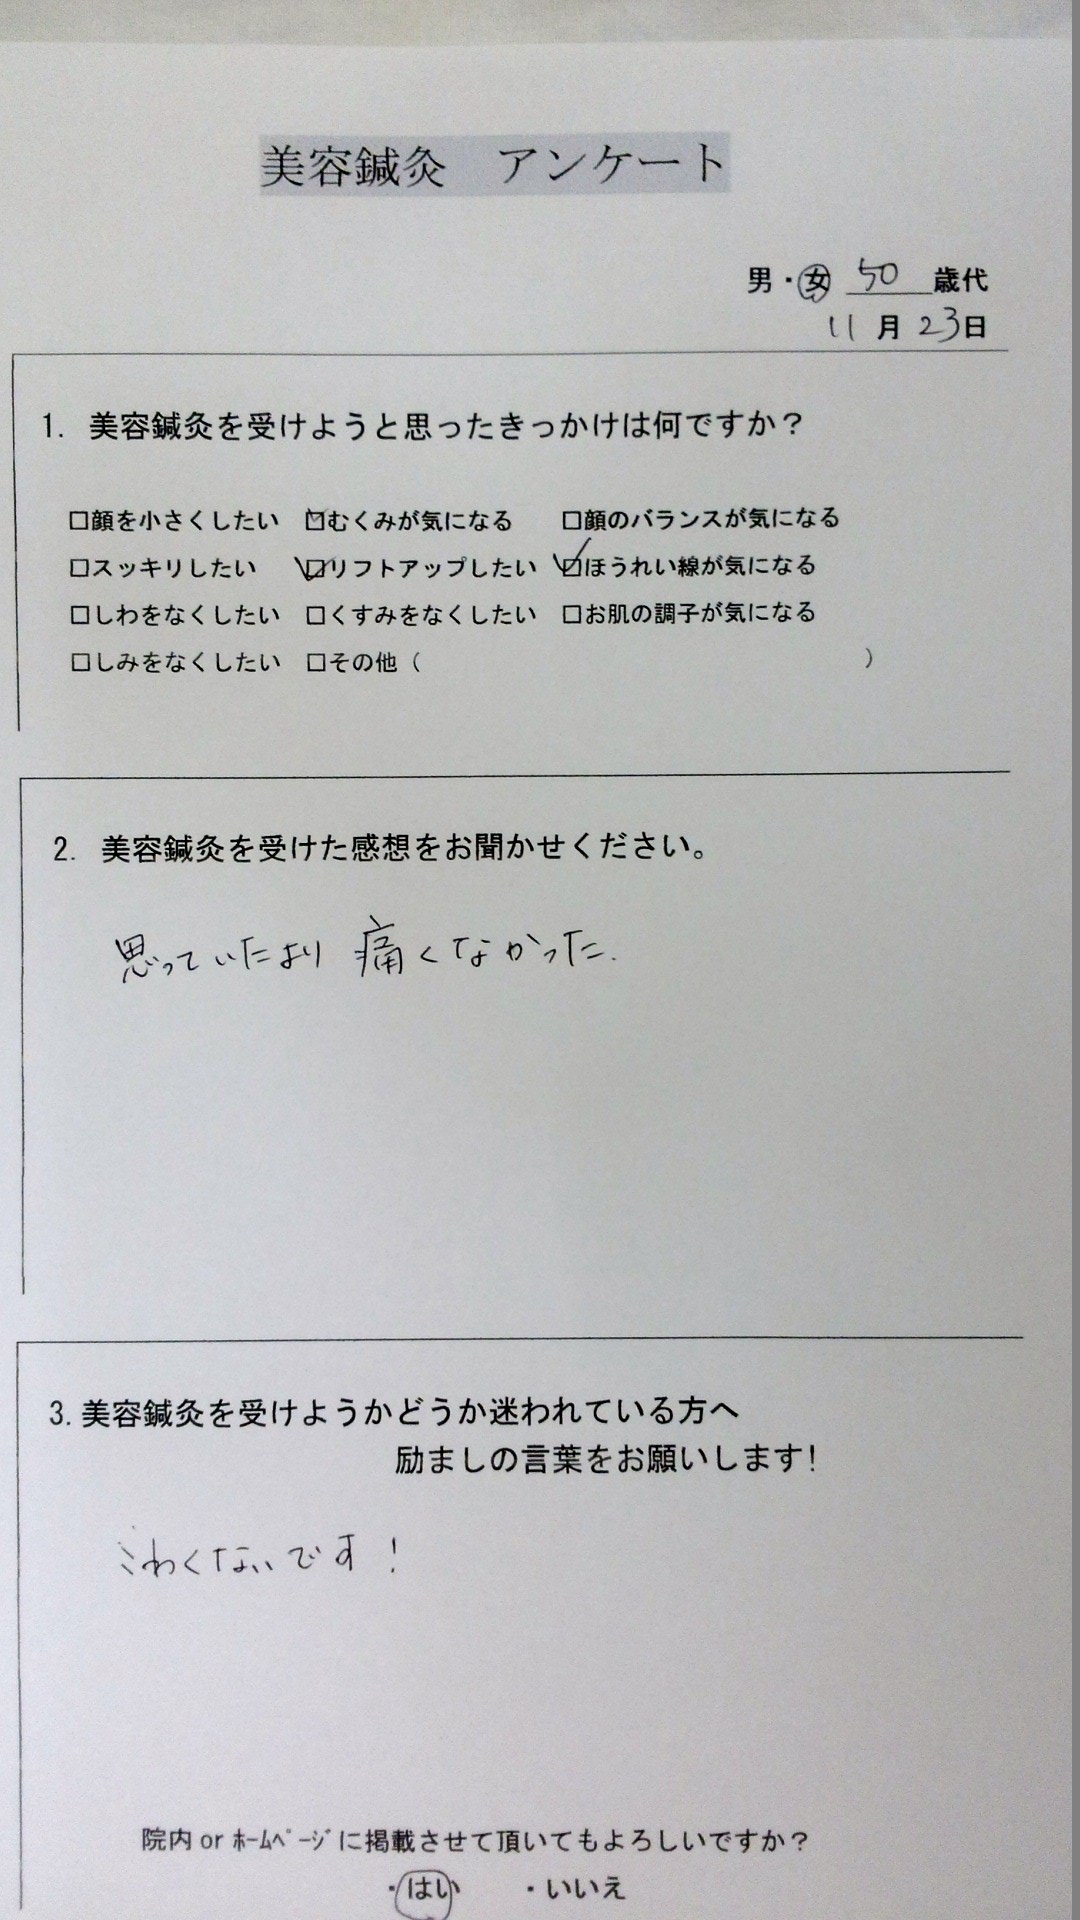 美容鍼灸 アンケート
男・女 50 歳代
11 月 23日
1. 美容鍼灸を受けようと思ったきっかけは何ですか？
□顔を小さくしたい ☑むくみが気になる □顔のバランスが気になる
□スッキリしたい ☑リフトアップしたい ☑ほうれい線が気になる
□しわをなくしたい □くすみをなくしたい □お肌の調子が気になる
□しみをなくしたい □その他（ ）
2. 美容鍼灸を受けた感想をお聞かせください。
思っていたより 痛くなかった.
3. 美容鍼灸を受けようかどうか迷われている方へ
励ましの言葉をお願いします！
こわくないです！
院内 or ﾎｰﾑﾍﾟｰｼﾞに掲載させて頂いてもよろしいですか？
・はい ・いいえ